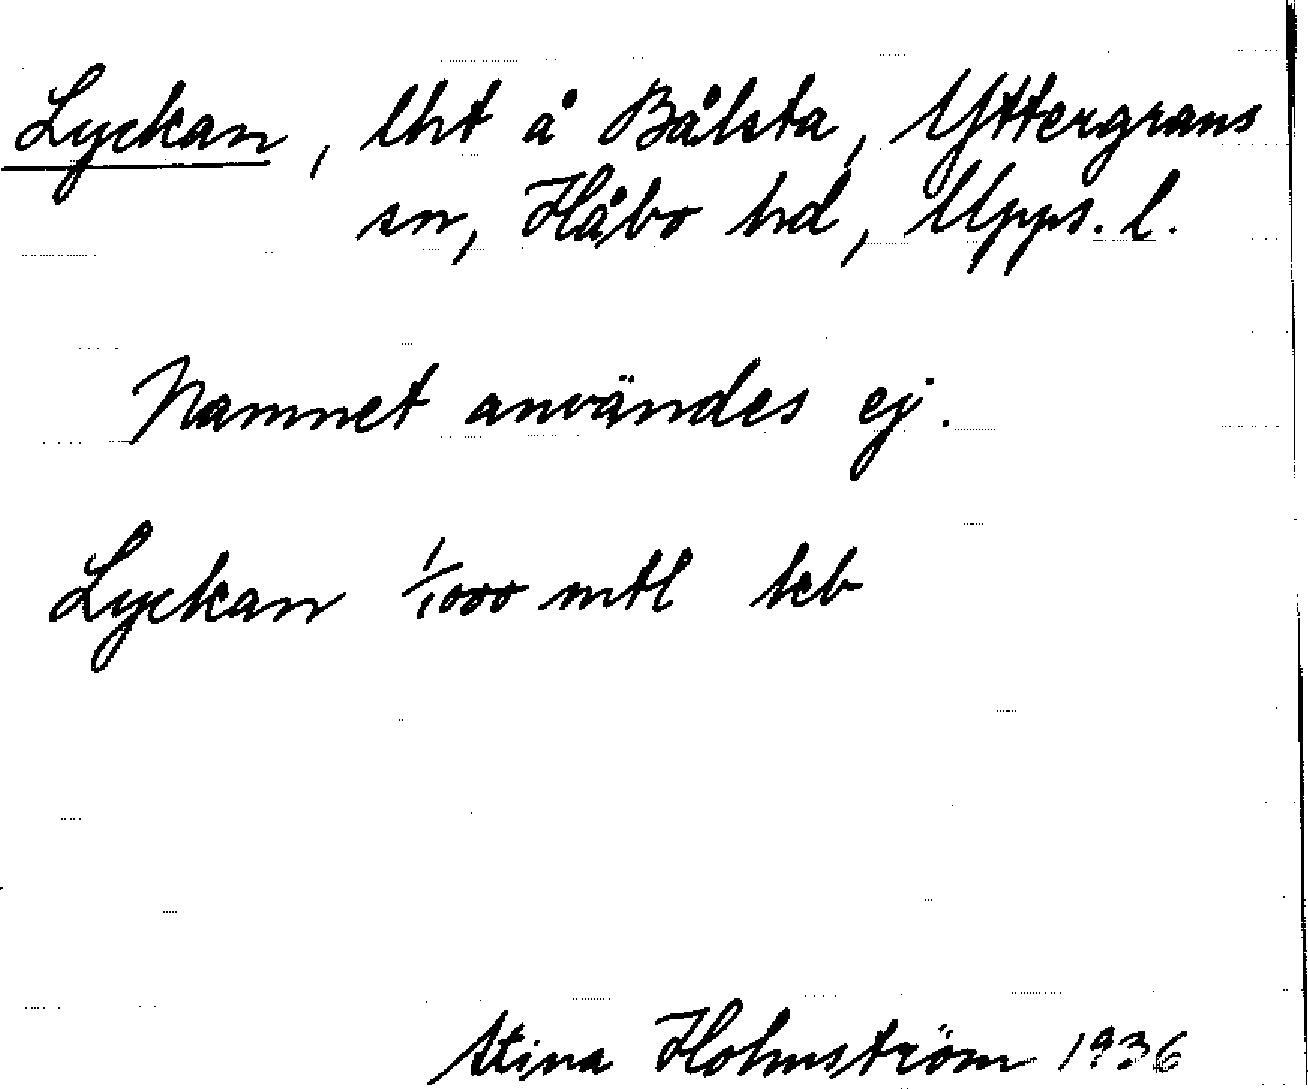 Lyckan, lht å Bålsta, Yttergrans
sn, Håbo hd, Upps. l.
Namnet användes ej.
Lyckan 1/1000 mtl
Stina Holmström 1936